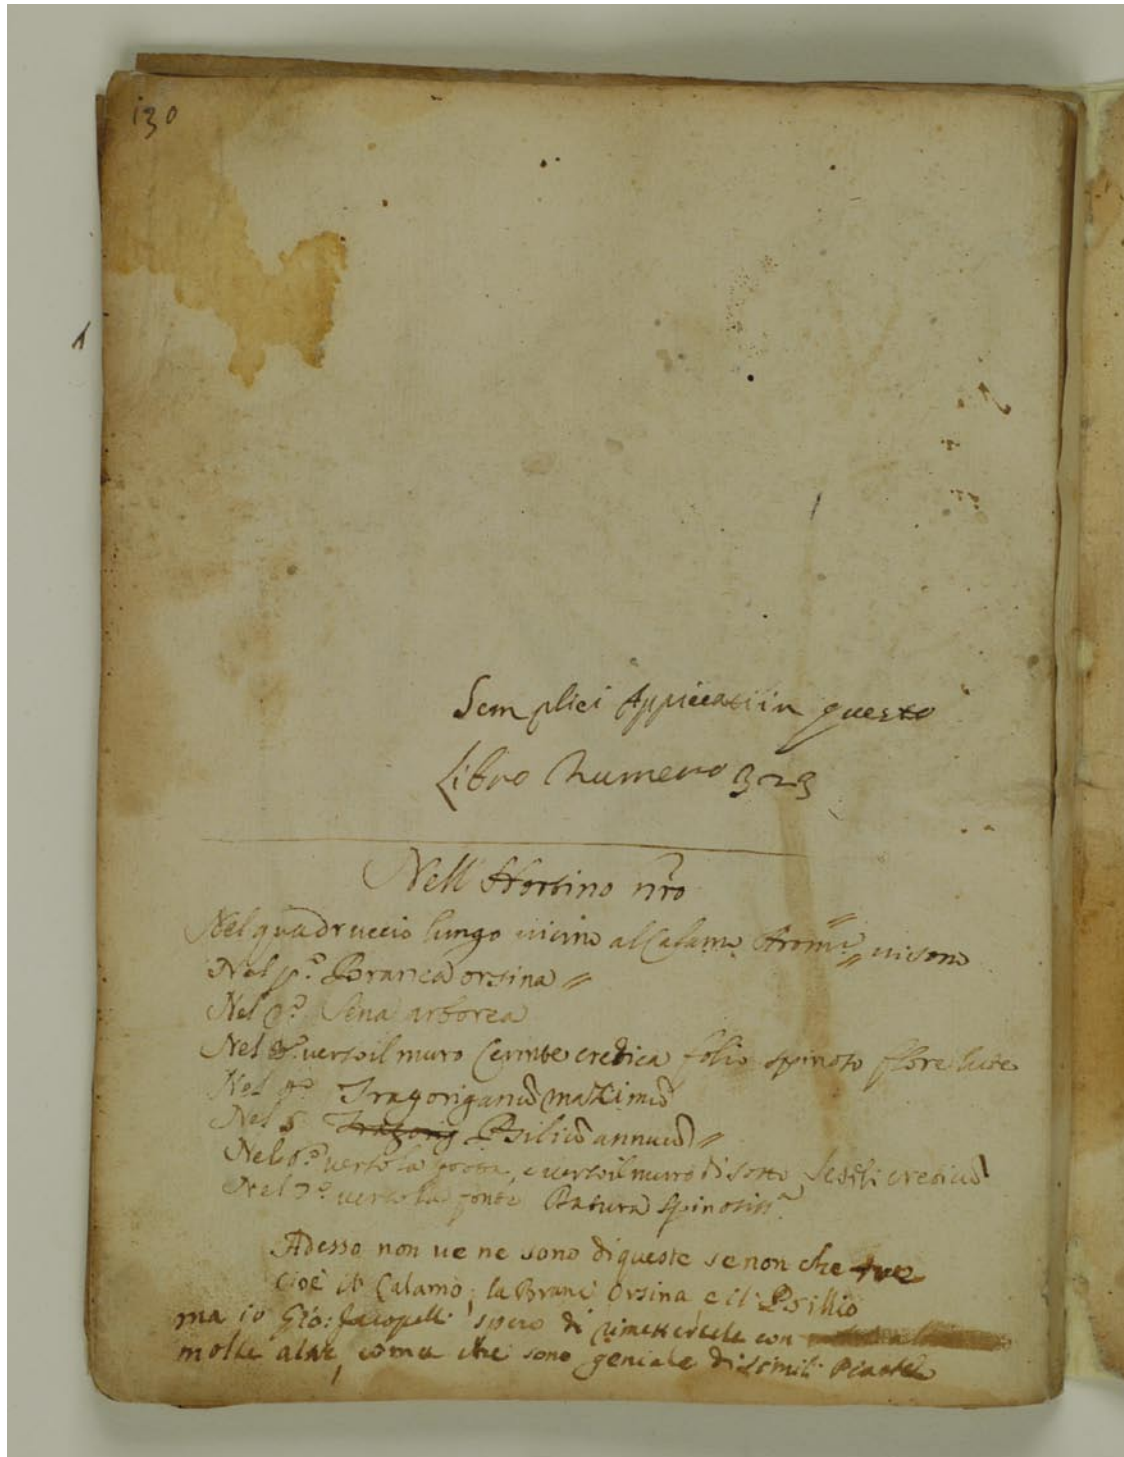 130
Semplici Appiccati in questo
Libro Numero 323
Nell Hortino nr̃o
Nel quadruccio lungo vicino al Calamo Arom: vi sono
Nel p.º Branca orsina
Nel 2.º Sena arborea
Nel 3.º verso il muro Cerinte cretica folio spinoso flore luteo
Nel 4.º Tragoriganũ maximũ
Nel 5 Tragorig Psiliũ annuũ
Nel 6.º verso la, e verso il muro di sotto Seseli creticũ
Nel 7.º verso la fonte Datura spinosiss.ª
Adesso non ve ne sono di queste se non che tre
cioè il Calamo, la Branc Orsina, e il Psillio
ma io Gio: Jacopelli spero di rimettercele con
molte altre, come che sono geniale di simili Piante